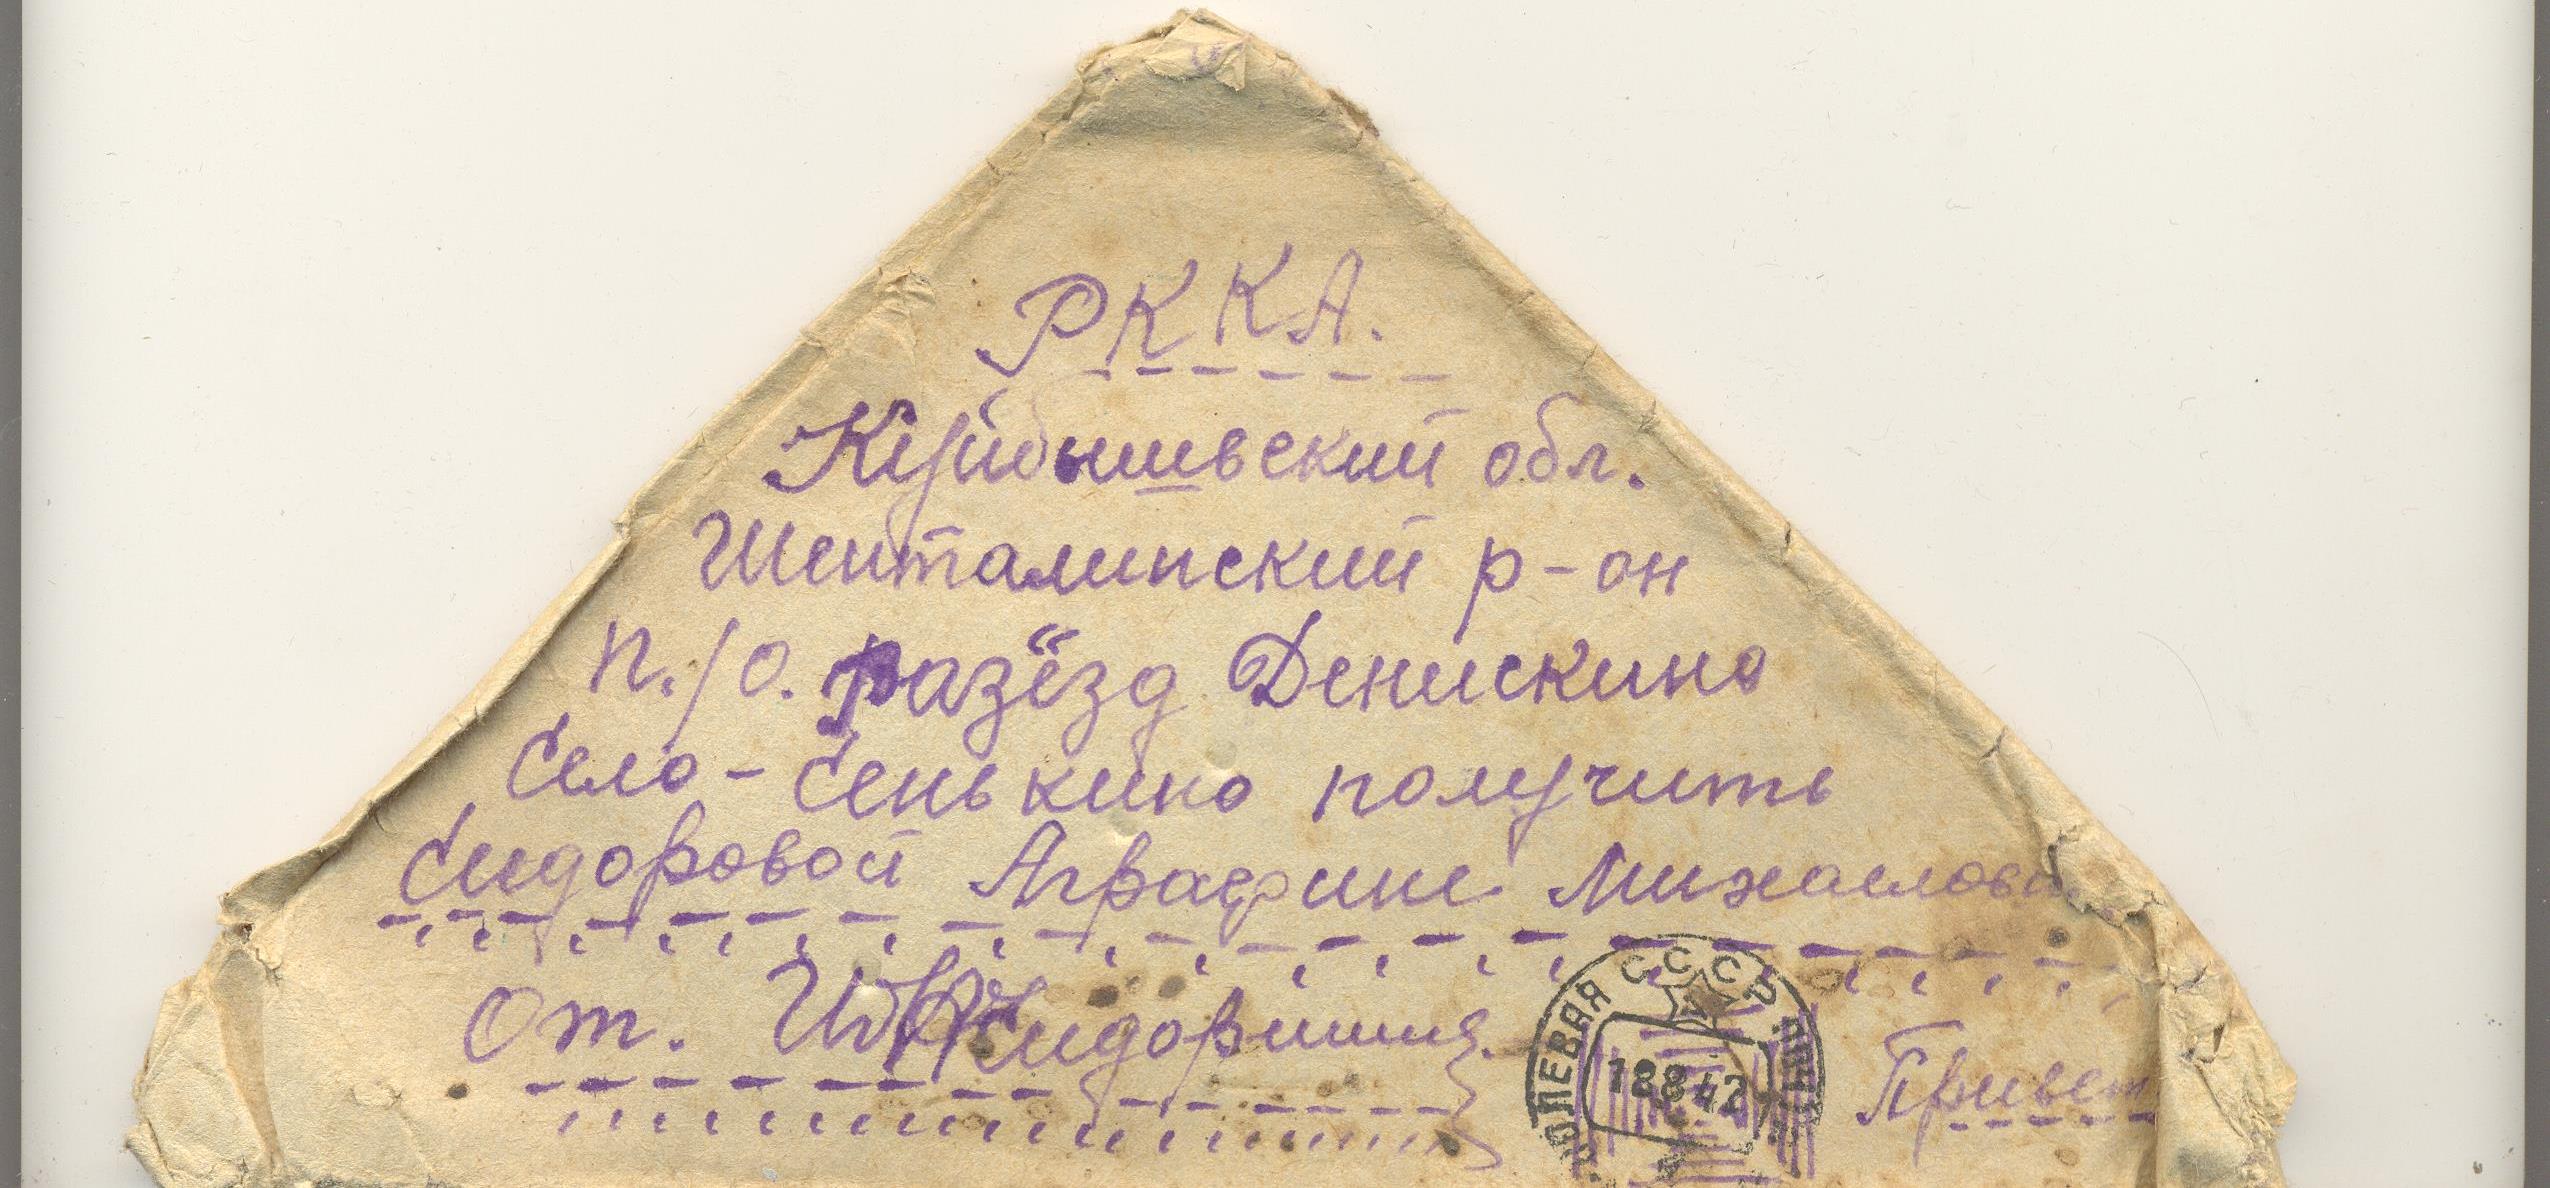 РККА.
Куйбышвский обл.
Шенталинский р-он
п./о. разёзд Денискино
Село-Сенькино получить
Сидоровой Аграфине Михаловн
От. Сидоришия.
СССР
ПОЛЕВАЯ
18842
Привет